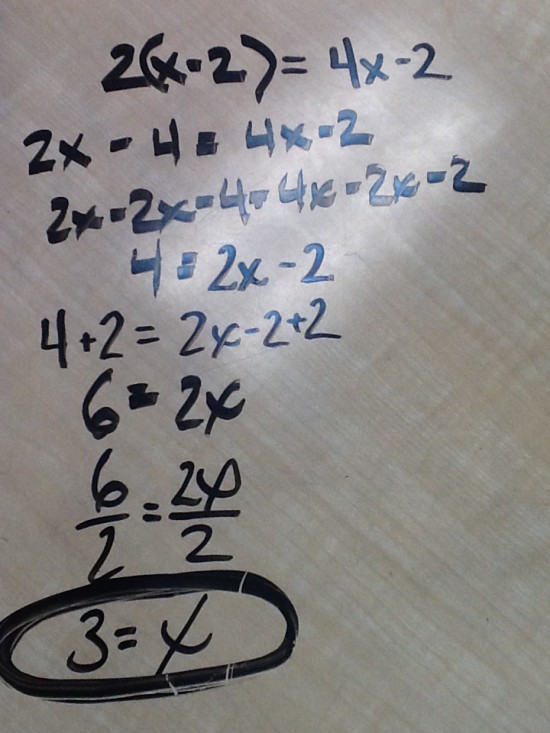 2(x-2) = 4x-2
2x - 4 = 4x-2
2x-2x-4=4x-2x-2
4 = 2x - 2
4+2 = 2x-2+2
6 = 2x
6/2 = 2x/2
3 = x